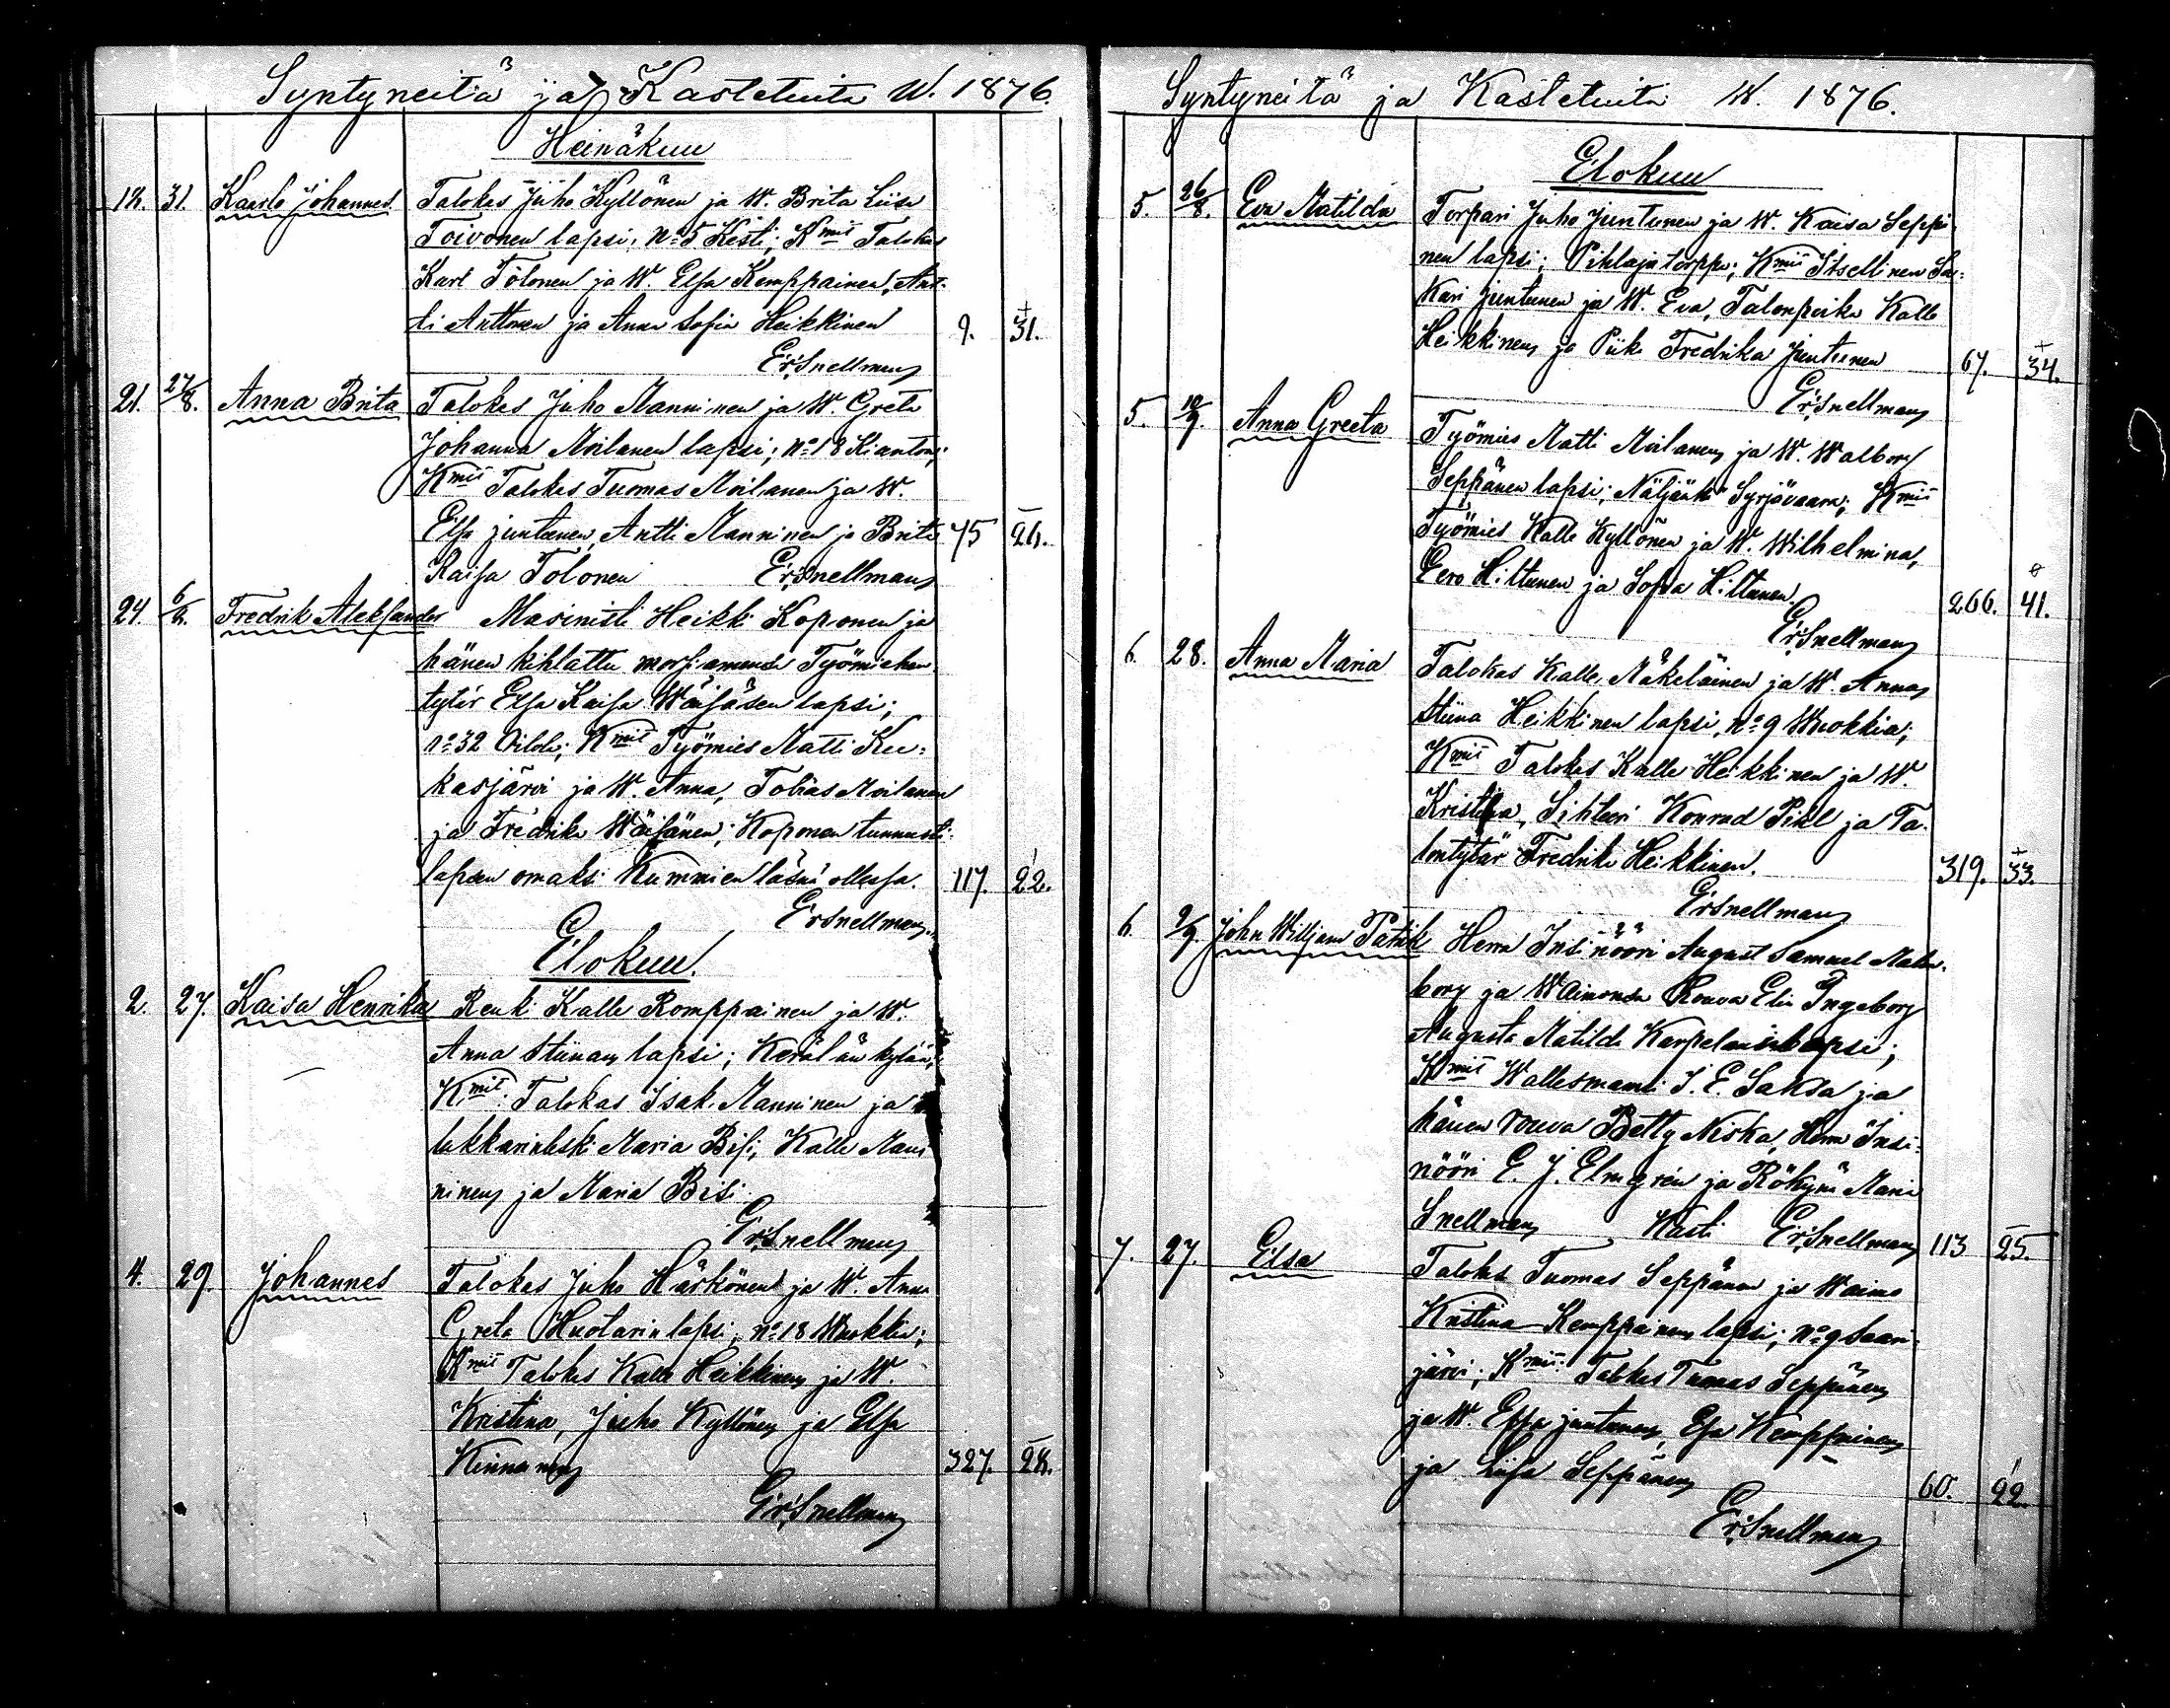 Syntyneitä ja Kastetuita W. 1876.
Heinäkuu
18. 31. Kaarlo Johannes. Talokas Juho Kyllönen ja W. Brita Liisa
Toivonen lapsi; No 5 Kesti; Kmit Talokas
Karl Tolonen ja W. Elsa Kemppainen, Ant-
ti Anttonen ja Anna Sofia Heikkinen 9. 31.
Er. Snellman
21. 27/8. Anna Brita Talokas Juho Manninen ja W. Greta
Johanna Moilanen lapsi; No 18 Kianton;
Kmit Talokas Tuomas Moilanen ja W.
Elsa Juntunen, Antti Manninen ja Brita 45 26.
Kaisa Tolonen Er. Snellman
24. 6/8. Fredrik Aleksander Masinisti Heikki Koponen ja
hänen kihlattu morsiamensa Työmiehen
tytär Elsa Kaisa Wäisäsen lapsi;
No 32 Kmit Työmies Matti Ku-
kasjärvi ja W. Anna, Tobias Moilanen
ja Fredrika Wäisänen; Koponen tunnusti
lapsen omaksi Kummien läsnä ollessa. 117. 22.
Er Snellman.
Elokuu.
2. 27. Kaisa Henrika Renki Kalle Romppainen ja W.
Anna Stiinan lapsi; Kerälän kylän;
Kmit. Talokas Isak Manninen ja
lukkarinleski Maria Bisi; Kalle Man-
ninen ja Maria Bisi.
Er. Snellman
4. 29. Johannes Talokas Juho Härkönen ja W. Anna
Greta Huotarin lapsi; No 18 Wuokki;
Kmit Talokas Kalle Heikkinen ja W.
Kristina, Juho Kyllönen ja Elsa
Kinnunen 327. 28.
Er. Snellman
Syntyneitä ja Kastetuita W. 1876.
Elokuu
5. 26/8. Eva Matilda Torpari Juho Juntunen ja W. Kaisa Seppi-
nen lapsi; Pihlaja torppa; Kmii Itsellinen Sa-
kari Juntunen ja W. Eva, Talonpoika Kalle
Heikkinen ja Piika Fredrika Juntunen 67. 34.
Er. Snellman
5. 10/9. Anna Greeta Työmies Matti Moilanen ja W. Walborg
Seppänen lapsi; Näljänkä Syrjävaara; Kmii
Työmies Kalle Kyllönen ja W. Wilhelmina,
Eero Hiltunen ja Sofia Hiltunen. 266. 41.
Er. Snellman
6. 28. Anna Maria Talokas Kalle Mäkeläinen ja W. Anna
Stiina Heikkinen lapsi, No 9 Wuokkia;
Kmit Talokas Kalle Heikkinen ja W.
Kristina, Sihteeri Konrad Pihl ja Ta-
lontytär Fredrika Heikkinen. 319. 33.
Er Snellman
6. 9/9. John Willjam Patrik Herra Insinööri August Samuel Malm-
borg ja Waimonsa Rouva Elin Ingeborg
Augusta Matilda Karpelanin lapsi;
Kmit Wallesmanni J. E. Saksa ja
hänen rouva Betty Niska, Herra Insi-
nööri E. J. Elmgrén ja Röökynä Maria
Snellman Kasti Er. Snellman 113 25.
7. 27. Elsa Talokas Tuomas Seppänen ja Waimo
Kristina Kemppainen lapsi; No 9 Saari-
järvi; Kmii: Talokas Tuomas Seppänen
ja W. Elsa Juntunen, Esa Kemppainen
ja Liisa Seppänen 60. 22.
Er. Snellman